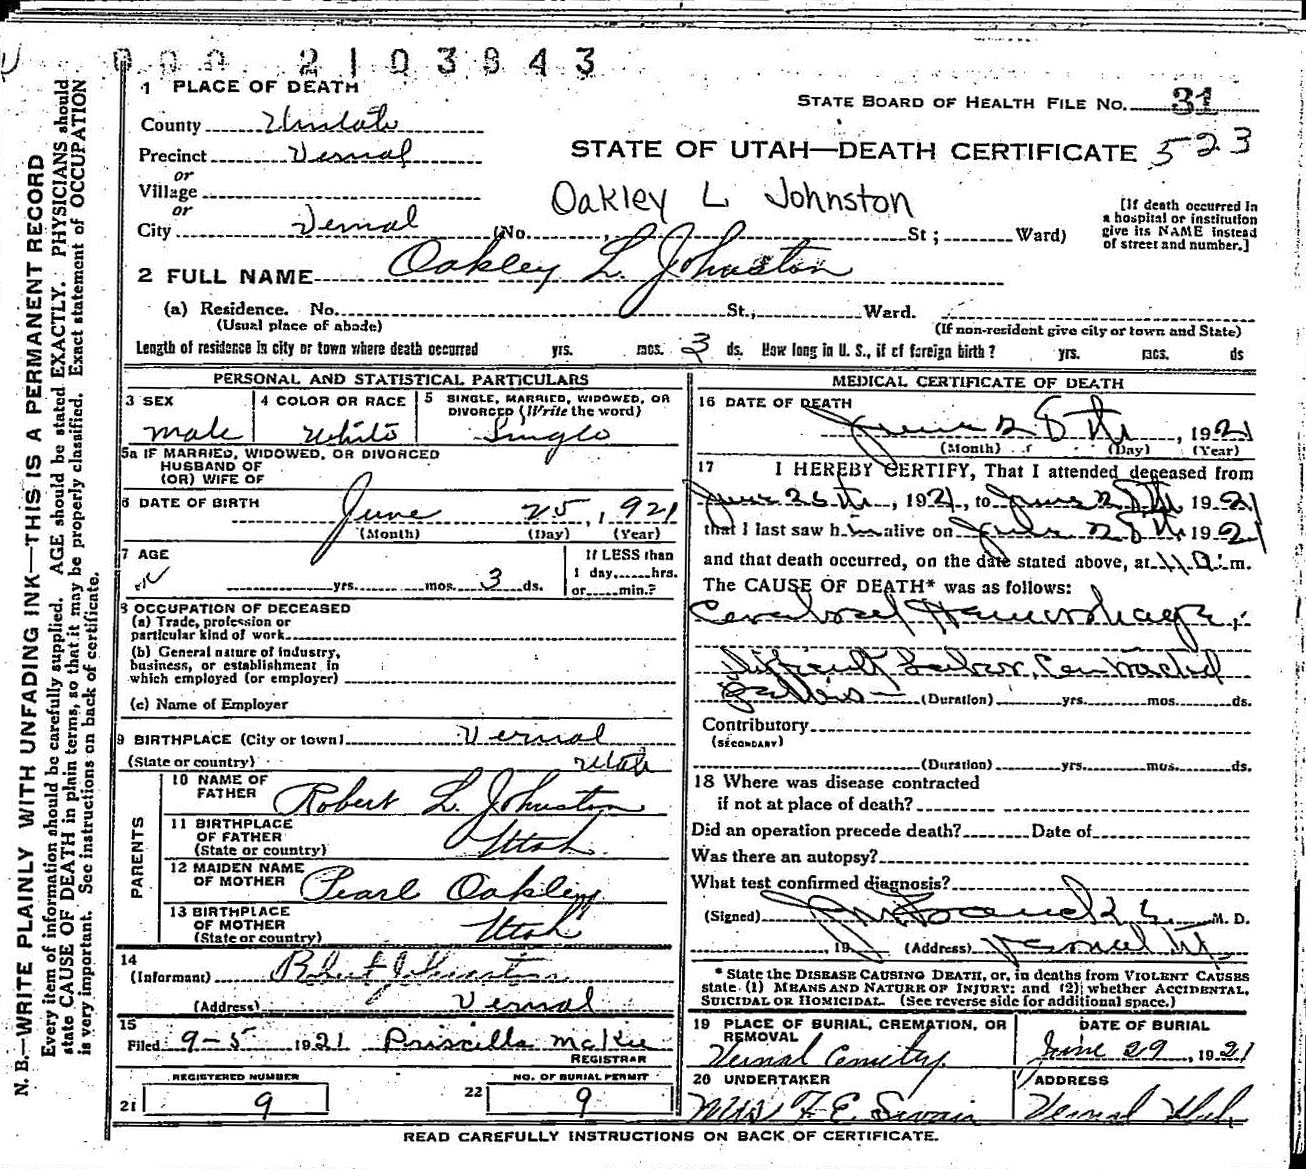 000 2103843
1 PLACE OF DEATH
STATE BOARD OF HEALTH FILE NO. 31
County Uintah
Precinct Vernal
STATE OF UTAH—DEATH CERTIFICATE 523
or
Village
Oakley L Johnston
or
City Vernal (No. , St ; Ward)
[If death occurred in a hospital or institution give its NAME instead of street and number.]
2 FULL NAME Oakley L. Johnston
(a) Residence. No. St., Ward.
(Usual place of abode) (If non-resident give city or town and State)
Length of residence in city or town where death occurred yrs. mos. 3 ds. How long in U. S., if of foreign birth? yrs. mos. ds
PERSONAL AND STATISTICAL PARTICULARS
3 SEX
male
4 COLOR OR RACE
White
5 SINGLE, MARRIED, WIDOWED, OR
DIVORCED (Write the word)
Single
5a IF MARRIED, WIDOWED, OR DIVORCED
HUSBAND OF
(OR) WIFE OF
6 DATE OF BIRTH
June 25, 1921
(Month) (Day) (Year)
7 AGE
yrs. mos. 3 ds.
If LESS than
1 day, hrs.
or min.?
8 OCCUPATION OF DECEASED
(a) Trade, profession or
particular kind of work
(b) General nature of industry,
business, or establishment in
which employed (or employer)
(c) Name of Employer
9 BIRTHPLACE (City or town) Vernal
(State or country) Utah
PARENTS
10 NAME OF
FATHER Robert L. Johnston
11 BIRTHPLACE
OF FATHER
(State or country) Utah
12 MAIDEN NAME
OF MOTHER Pearl Oakley
13 BIRTHPLACE
OF MOTHER
(State or country) Utah
14
(Informant) Robert Johnston
(Address) Vernal
15
Filed 9-5 1921 Priscilla McKie
REGISTRAR
REGISTERED NUMBER
21 9
NO. OF BURIAL PERMIT
22 9
MEDICAL CERTIFICATE OF DEATH
16 DATE OF DEATH
June 28th, 1921
(Month) (Day) (Year)
17 I HEREBY CERTIFY, That I attended deceased from
June 26th, 1921, to June 28th 1921
that I last saw him alive on 28th 1921
and that death occurred, on the date stated above, at 11 m.
The CAUSE OF DEATH* was as follows:
Cerebral Hemorhage,
Difficult Labor, Contracted
Pelvis— (Duration) yrs. mos. ds.
Contributory
(SECONDARY)
(Duration) yrs. mos. ds.
18 Where was disease contracted
if not at place of death?
Did an operation precede death? Date of
Was there an autopsy?
What test confirmed diagnosis?
(Signed) M. D.
, 19 (Address) Vernal Ut.
* State the DISEASE CAUSING DEATH, or, in deaths from VIOLENT CAUSES
state (1) MEANS AND NATURE OF INJURY; and (2) whether ACCIDENTAL,
SUICIDAL OR HOMICIDAL. (See reverse side for additional space.)
19 PLACE OF BURIAL, CREMATION, OR
REMOVAL
Vernal Cemetery.
DATE OF BURIAL
June 29, 1921
20 UNDERTAKER
Mrs F. E. Swain
ADDRESS
Vernal Utah
READ CAREFULLY INSTRUCTIONS ON BACK OF CERTIFICATE.
N. B.—WRITE PLAINLY WITH UNFADING INK—THIS IS A PERMANENT RECORD
Every item of information should be carefully supplied. AGE should be stated EXACTLY. PHYSICIANS should
state CAUSE OF DEATH in plain terms, so that it may be properly classified. Exact statement of OCCUPATION
is very important. See instructions on back of certificate.